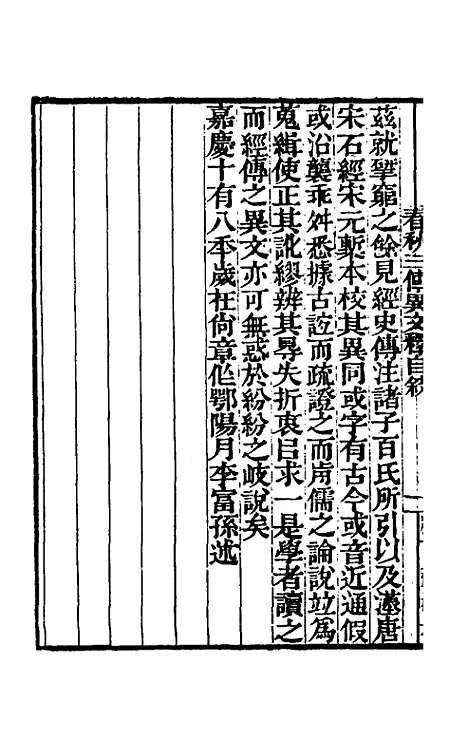 春秋三傳異文釋自敘
茲就揅窮之餘見經史傳注諸子百氏所引以及漢唐
宋石經宋元槧本校其異同或字有古今或音近通假
或沿襲乖舛悉據古誼而疏證之而歬儒之論說竝爲
蒐緝使正其訛繆辨其㝵失折衷㠯求一是學者讀之
而經傳之異文亦可無惑於紛紛之歧說矣
嘉慶十有八秊歲在尙章作鄂陽月李富孫述